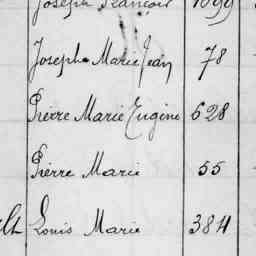 Joseph Francois 1099
Joseph Marie Jean 78
Pierre Marie Eugène 628
Pierre Marie 55
Louis Marie 384